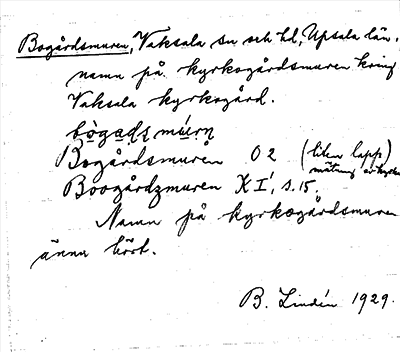 Bogårdsmuren, Vaksala sn och hd, Upsala län.
namn på kyrkogårdsmuren kring
Vaksala kyrkogård.
bogads murn
Bogårdsmuren O 2 (liten lapp)
mätning av kyrkan
Boogårdzmuren K I, s. 15.
Namn på kyrkogårdsmuren
ännu hört.
B. Lindén 1929.